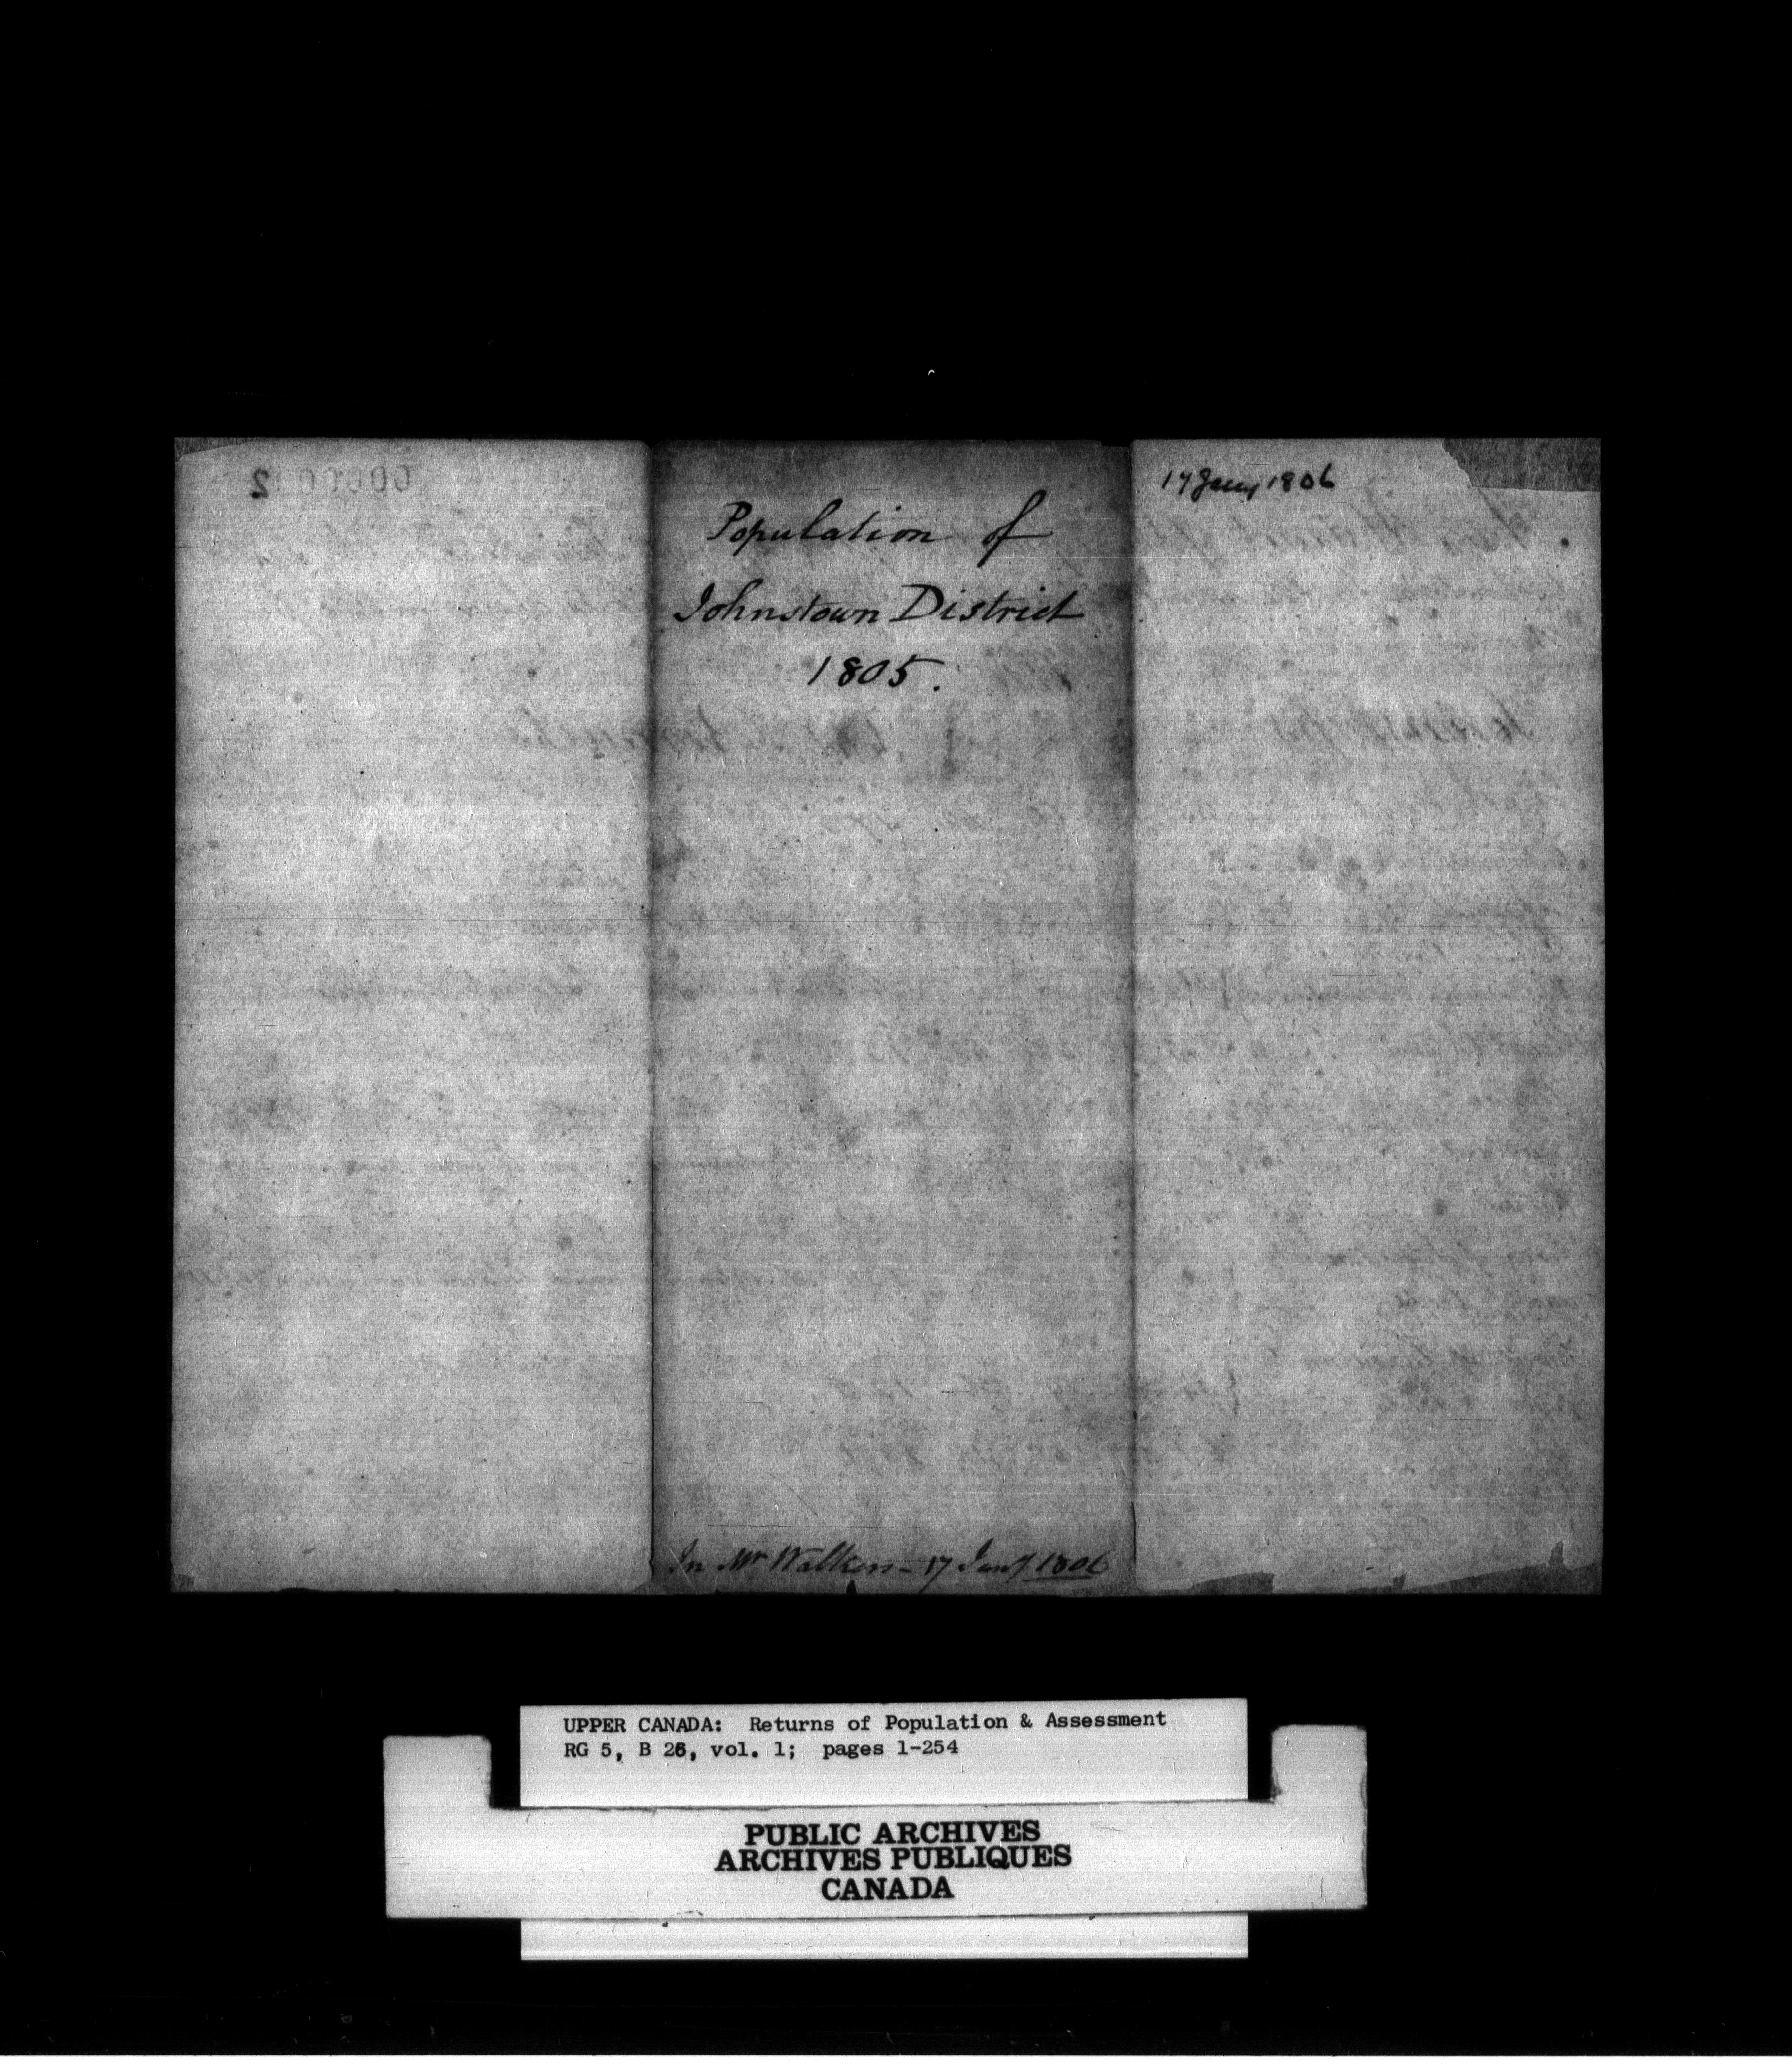 17 Jany 1806
Population of
Johnstown District
1805.
In Mr Walkers - 17 Jany 1806
UPPER CANADA: Returns of Population & Assessment
RG 5, B 26, vol. 1; pages 1-254
PUBLIC ARCHIVES
ARCHIVES PUBLIQUES
CANADA